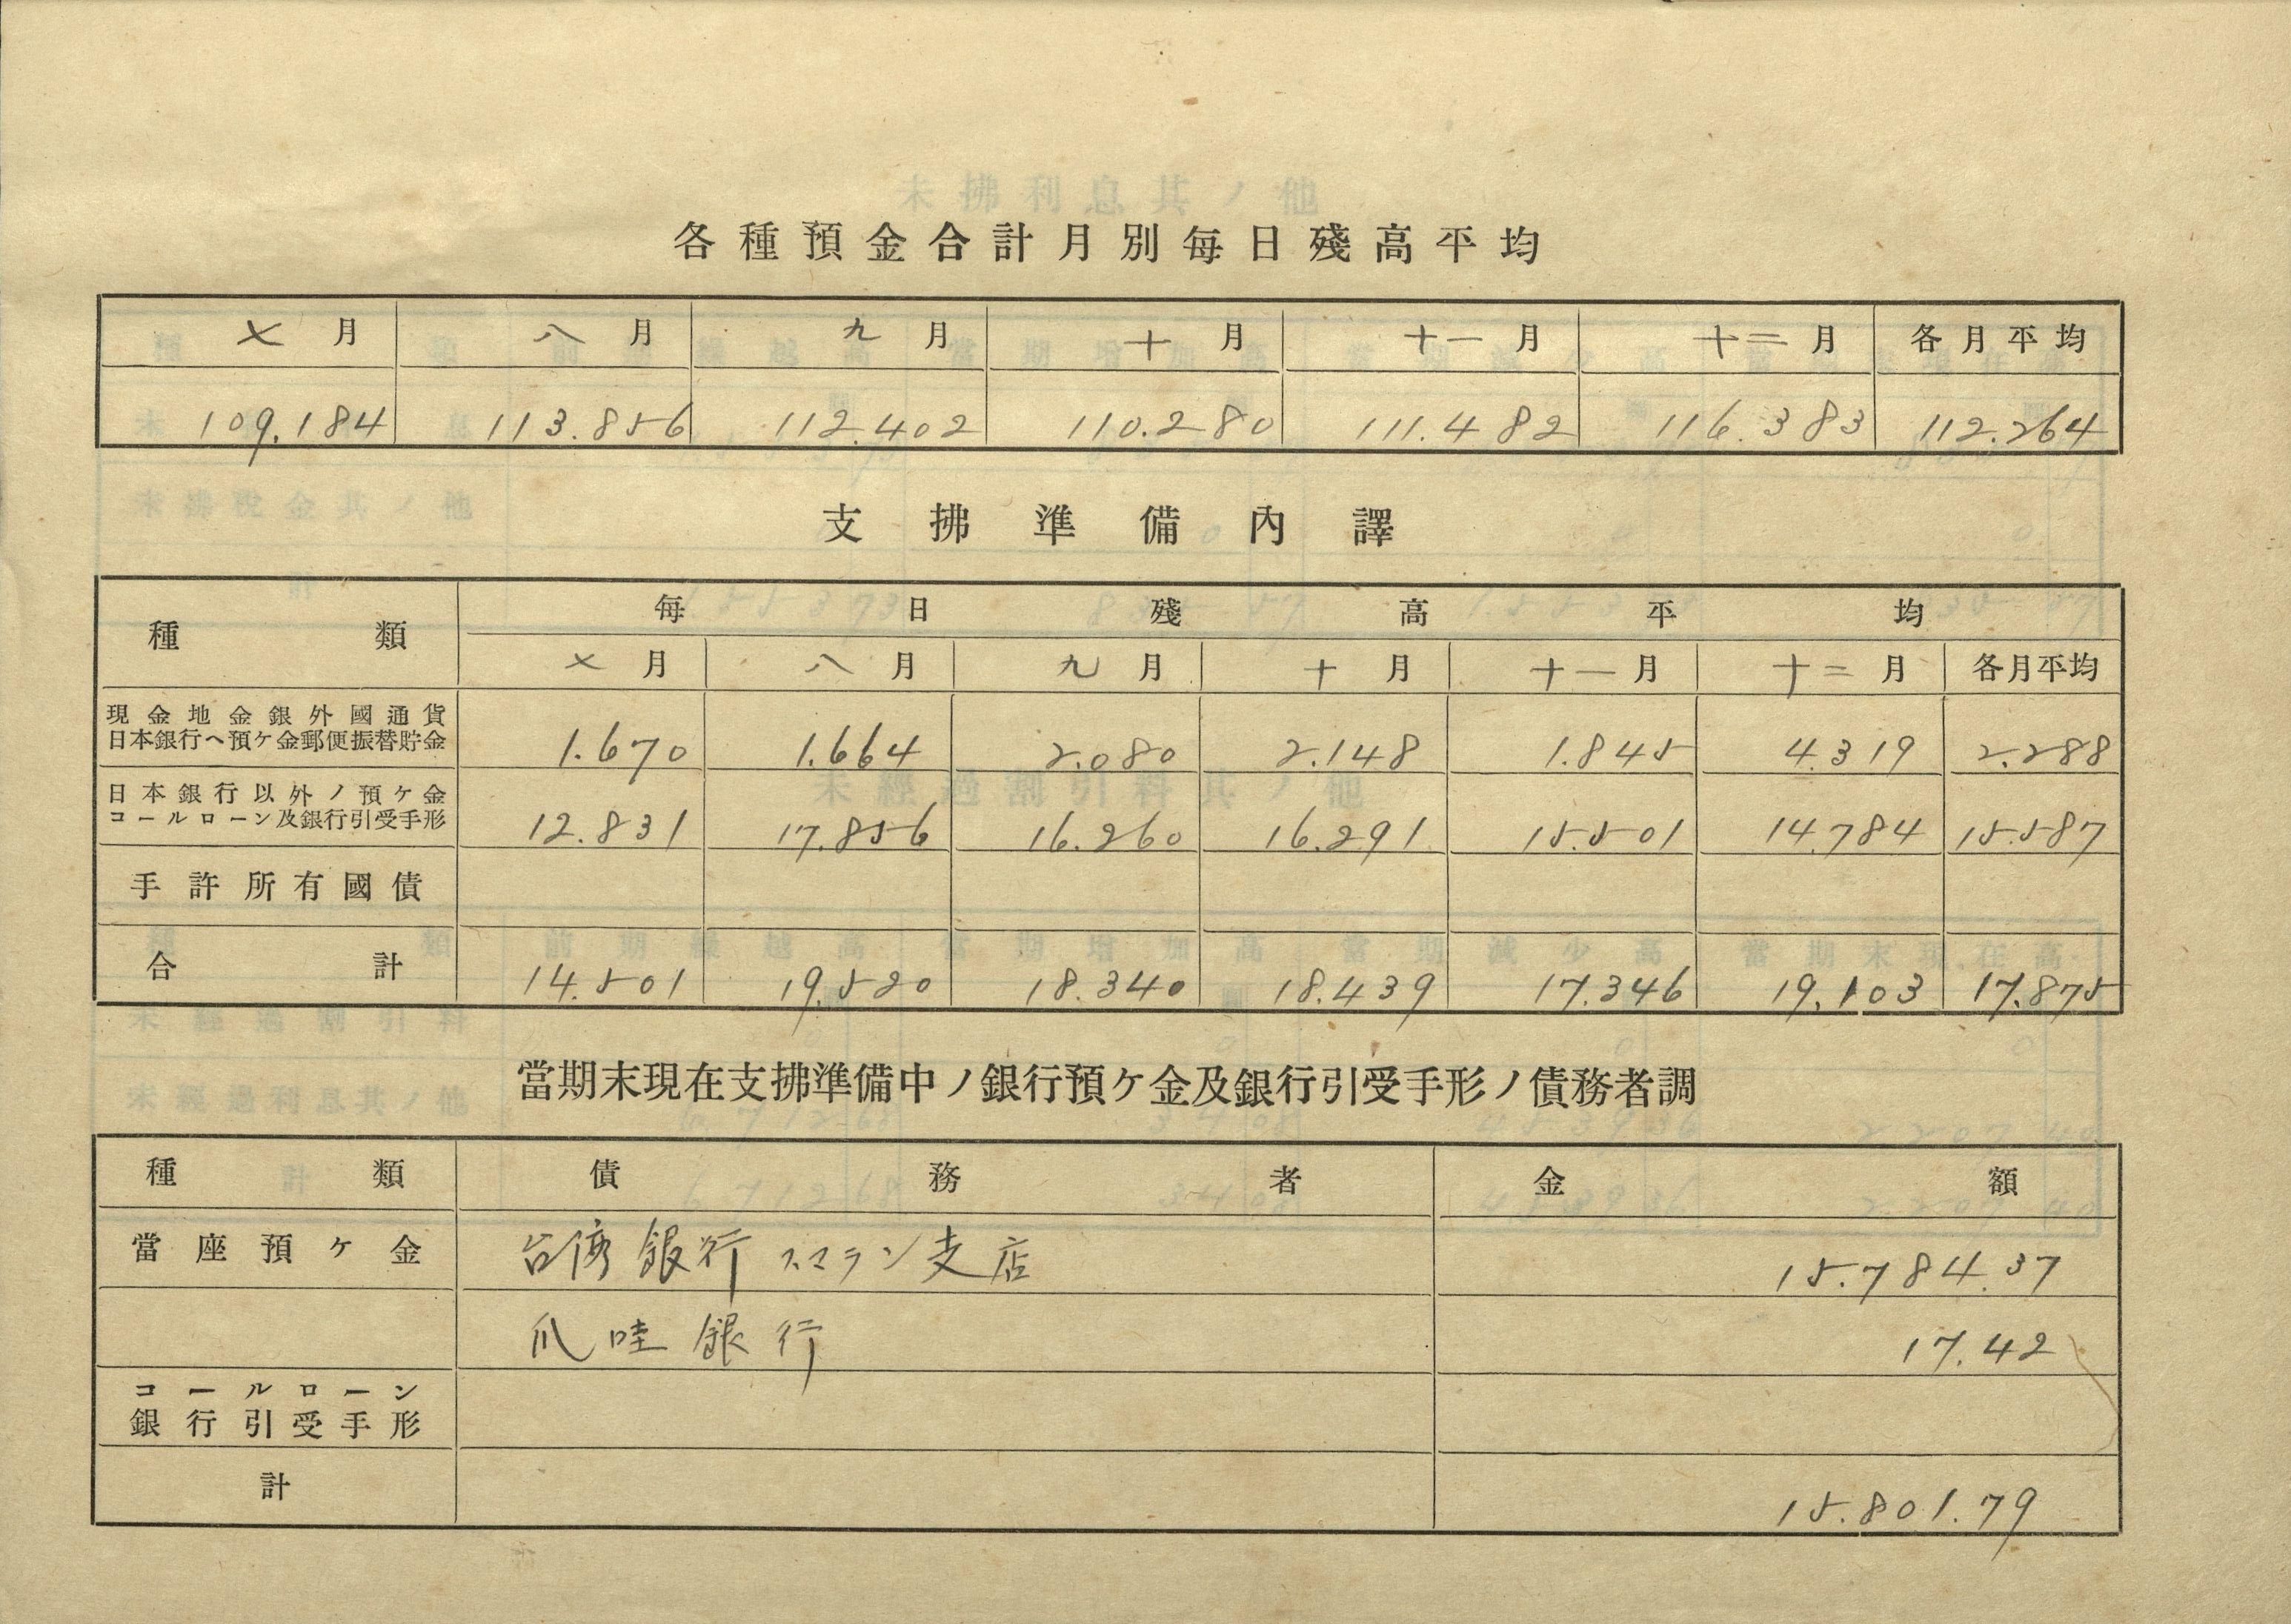 各種預金合計月別每日殘高平均
七月 八月 九月 十月 十一月 十二月 各月平均
109.184 113.856 112.402 110.280 111.482 116.383 112.264
支拂準備內譯
種類 每日殘高平均
七月 八月 九月 十月 十一月 十二月 各月平均
現金地金銀外國通貨
日本銀行ヘ預ケ金郵便振替貯金 1.670 1.664 2.080 2.148 1.845 4.319 2.288
日本銀行以外ノ預ケ金
コールローン及銀行引受手形 12.831 17.856 16.260 16.291 15.501 14.784 15.587
手許所有國債
合計 14.501 19.520 18.340 18.439 17.346 19.103 17.875
當期末現在支拂準備中ノ銀行預ケ金及銀行引受手形ノ債務者調
種類 債務者 金額
當座預ケ金 台湾銀行スマラン支店 15.784.37
爪哇銀行 17.42
コールローン
銀行引受手形
計 15.801.79